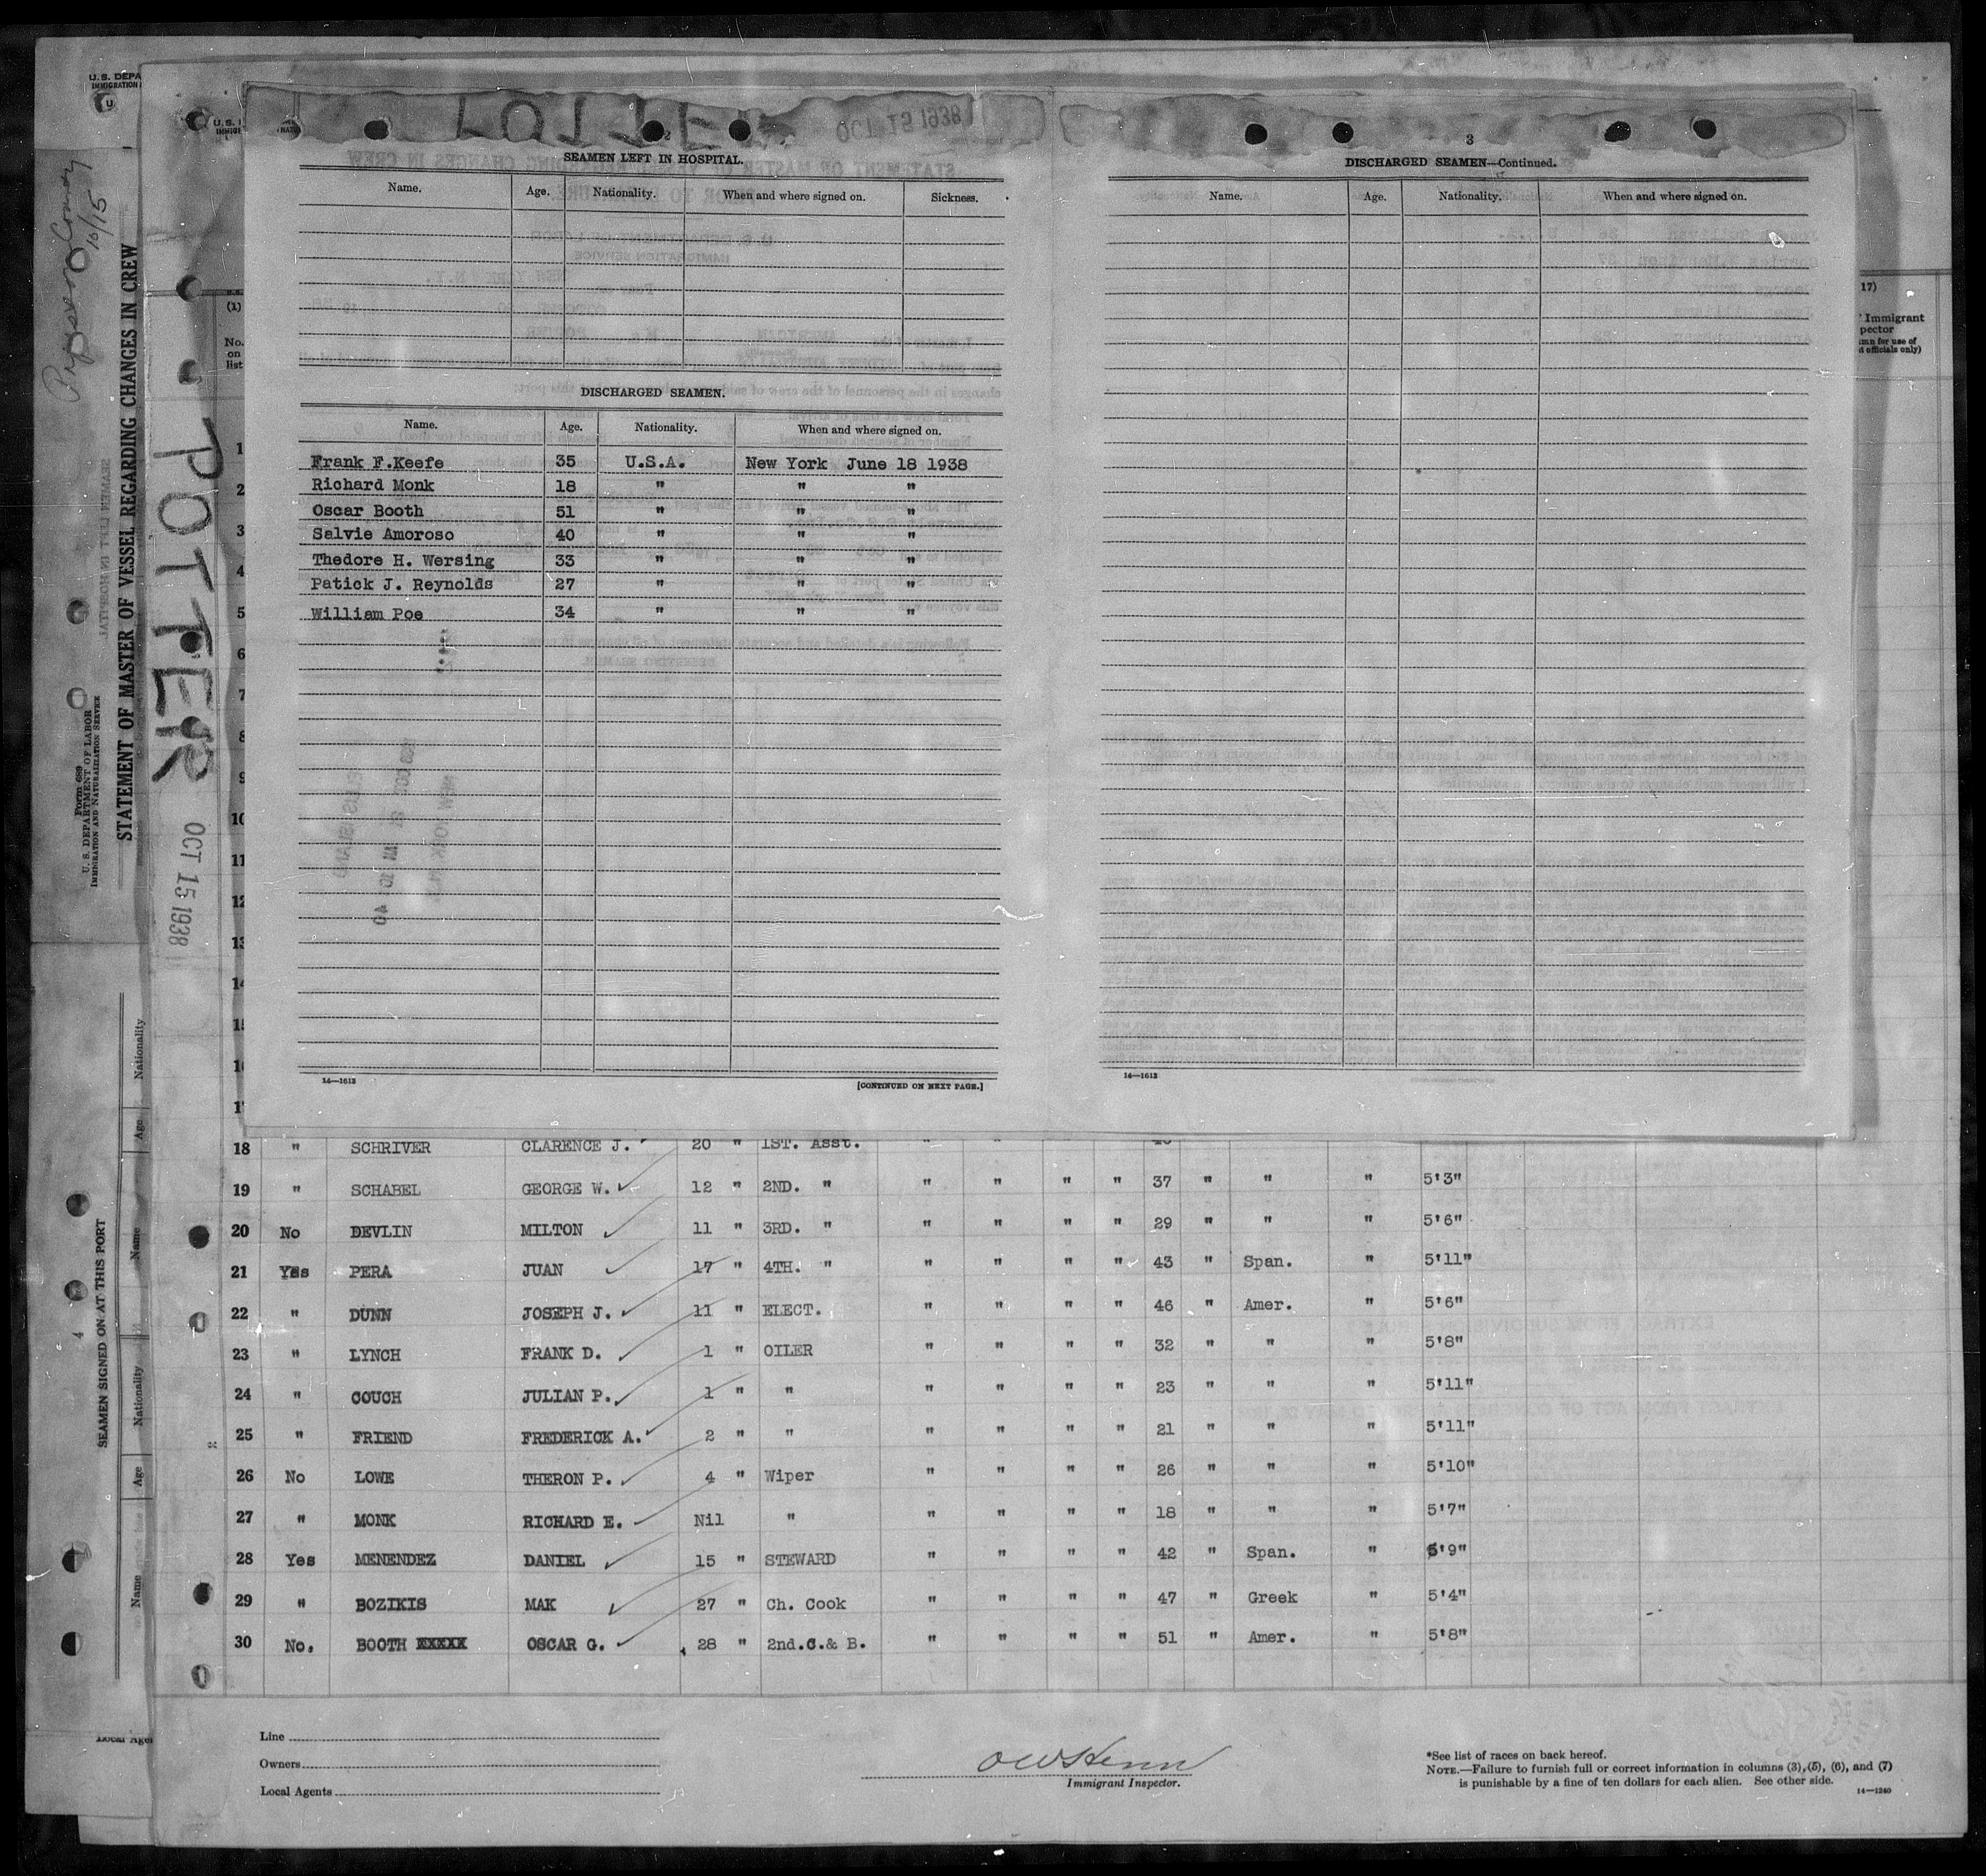 U. S. DEPA
IMMIGRATION
U
U. S. I
IMMIG
NATU
10/15
STATEMENT OF MASTER OF VESSEL REGARDING CHANGES IN CREW
Form 689
U. S. DEPARTMENT OF LABOR
IMMIGRATION AND NATURALIZATION SERVICE
POTTER
OCT 15 1938
SEAMEN SIGNED ON AT THIS PORT
4
Nationality
Age
Name
Nationality
Age
Name
Local Agen
OCT 15 1938
2
SEAMEN LEFT IN HOSPITAL.
Name. Age. Nationality. When and where signed on. Sickness.
DISCHARGED SEAMEN.
Name. Age. Nationality. When and where signed on.
Frank F.Keefe 35 U.S.A. New York June 18 1938
Richard Monk 18 " " "
Oscar Booth 51 " " "
Salvie Amoroso 40 " " "
Thedore H. Wersing 33 " " "
Patick J. Reynolds 27 " " "
William Poe 34 " " "
14—1612 [CONTINUED ON NEXT PAGE.]
3
DISCHARGED SEAMEN—Continued.
Name. Age. Nationality. When and where signed on.
14—1612
(1)
No.
on
list
17)
Immigrant
pector
mn for use of
officials only)
1
2
3
4
5
6
7
8
9
10
11
12
13
14
15
16
17
18 " SCHRIVER CLARENCE J. 20 " 1ST. Asst. " "
19 " SCHABEL GEORGE W. 12 " 2ND. " " " " " 37 " " " 5'3"
20 No DEVLIN MILTON 11 " 3RD. " " " " " 29 " " " 5'6"
21 Yes PERA JUAN 17 " 4TH. " " " " " 43 " Span. " 5'11"
22 " DUNN JOSEPH J. 11 " ELECT. " " " " 46 " Amer. " 5'6"
23 " LYNCH FRANK D. 1 " OILER " " " " 32 " " " 5'8"
24 " COUCH JULIAN P. 1 " " " " " " 23 " " " 5'11"
25 " FRIEND FREDERICK A. 2 " " " " " " 21 " " " 5'11"
26 No LOWE THERON P. 4 " Wiper " " " " 26 " " " 5'10"
27 " MONK RICHARD E. Nil " " " " " 18 " " " 5'7"
28 Yes MENENDEZ DANIEL 15 " STEWARD " " " " 42 " Span. " 5'9"
29 " BOZIKIS MAK 27 " Ch. Cook " " " " 47 " Greek " 5'4"
30 No. BOOTH XXXXX OSCAR G. 28 " 2nd.C.& B. " " " " 51 " Amer. " 5'8"
Line
Owners
Local Agents
Immigrant Inspector.
*See list of races on back hereof.
NOTE.—Failure to furnish full or correct information in columns (3), (5), (6), and (7)
is punishable by a fine of ten dollars for each alien. See other side.
14—1240